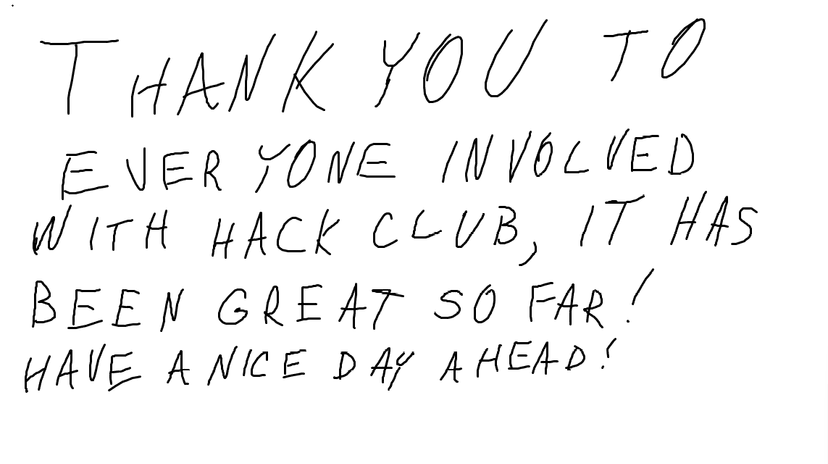 THANK YOU TO
EVERYONE INVOLVED
WITH HACK CLUB, IT HAS
BEEN GREAT SO FAR!
HAVE A NICE DAY AHEAD!